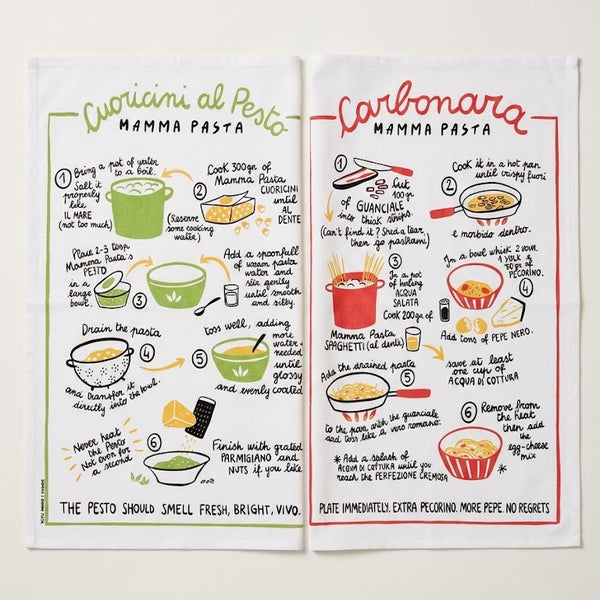 Cuoricini al Pesto
MAMMA PASTA
1
Bring a pot of water
to a boil.
Salt it
properly
like
IL MARE
(not too much)
2
Cook 300gr of
Mamma Pasta
CUORICINI
until
AL
DENTE
(Reserve
some cooking
water)
Place 2-3 tbsp
Mamma Pasta's
PESTO
in a
large
bowl.
3
Add a spoonfull
of warm pasta
water and
stir gently
until smooth
and silky.
Drain the pasta
4
and transfer it
directly into the bowl.
5
toss well, adding
more
water
needed
until
glossy
and evenly coated
Never heat
the Pesto
Not even for
a second
6
Finish with grated
PARMIGIANO and
NUTS if you like
THE PESTO SHOULD SMELL FRESH, BRIGHT, VIVO.
Carbonara
MAMMA PASTA
1
Cut
of GUANCIALE
into thick strips.
(Can't find it? Shed a tear,
then go pastrami)
2
Cook it in a hot pan
until crispy fuori
e morbido dentro.
3
In a pot
of boiling
ACQUA
SALATA
Cook 200gr of
Mamma Pasta
SPAGHETTI (al dente)
In a bowl whisk 2 uova,
1 yulk &
50 gr of
PECORINO.
4
Add tons of PEPE NERO.
save at least
one cup of
ACQUA DI COTTURA
Add the drained pasta
5
to the pan with the guanciale
and toss like a vero romano.
* Add a splash of
ACQUA DI COTTURA until you
reach the PERFEZIONE CREMOSA
6
Remove from
the heat
then add
the
egg-cheese
mix
*
PLATE IMMEDIATELY. EXTRA PECORINO. MORE PEPE. NO REGRETS